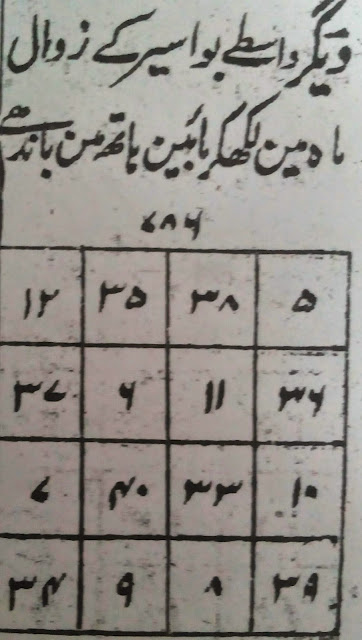 دیگر واسطے بواسیر کے زوال
ماہ مین لکھکر بائین ہاتھ مین باندھے
۷۸۶
۵ ۳۸ ۳۵ ۱۲
۳۶ ۱۱ ۶ ۳۷
۱۰ ۳۳ ۴۰ ۷
۳۹ ۸ ۹ ۳۴